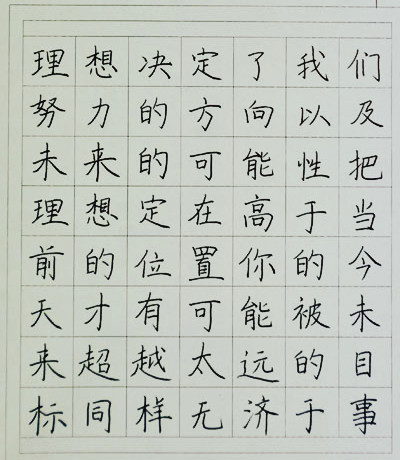 理想决定了我们
努力的方向以及
未来的可能性把
理想定在高于当
前的位置你的今
天才有可能被未
来超越太远的目
标同样无济于事